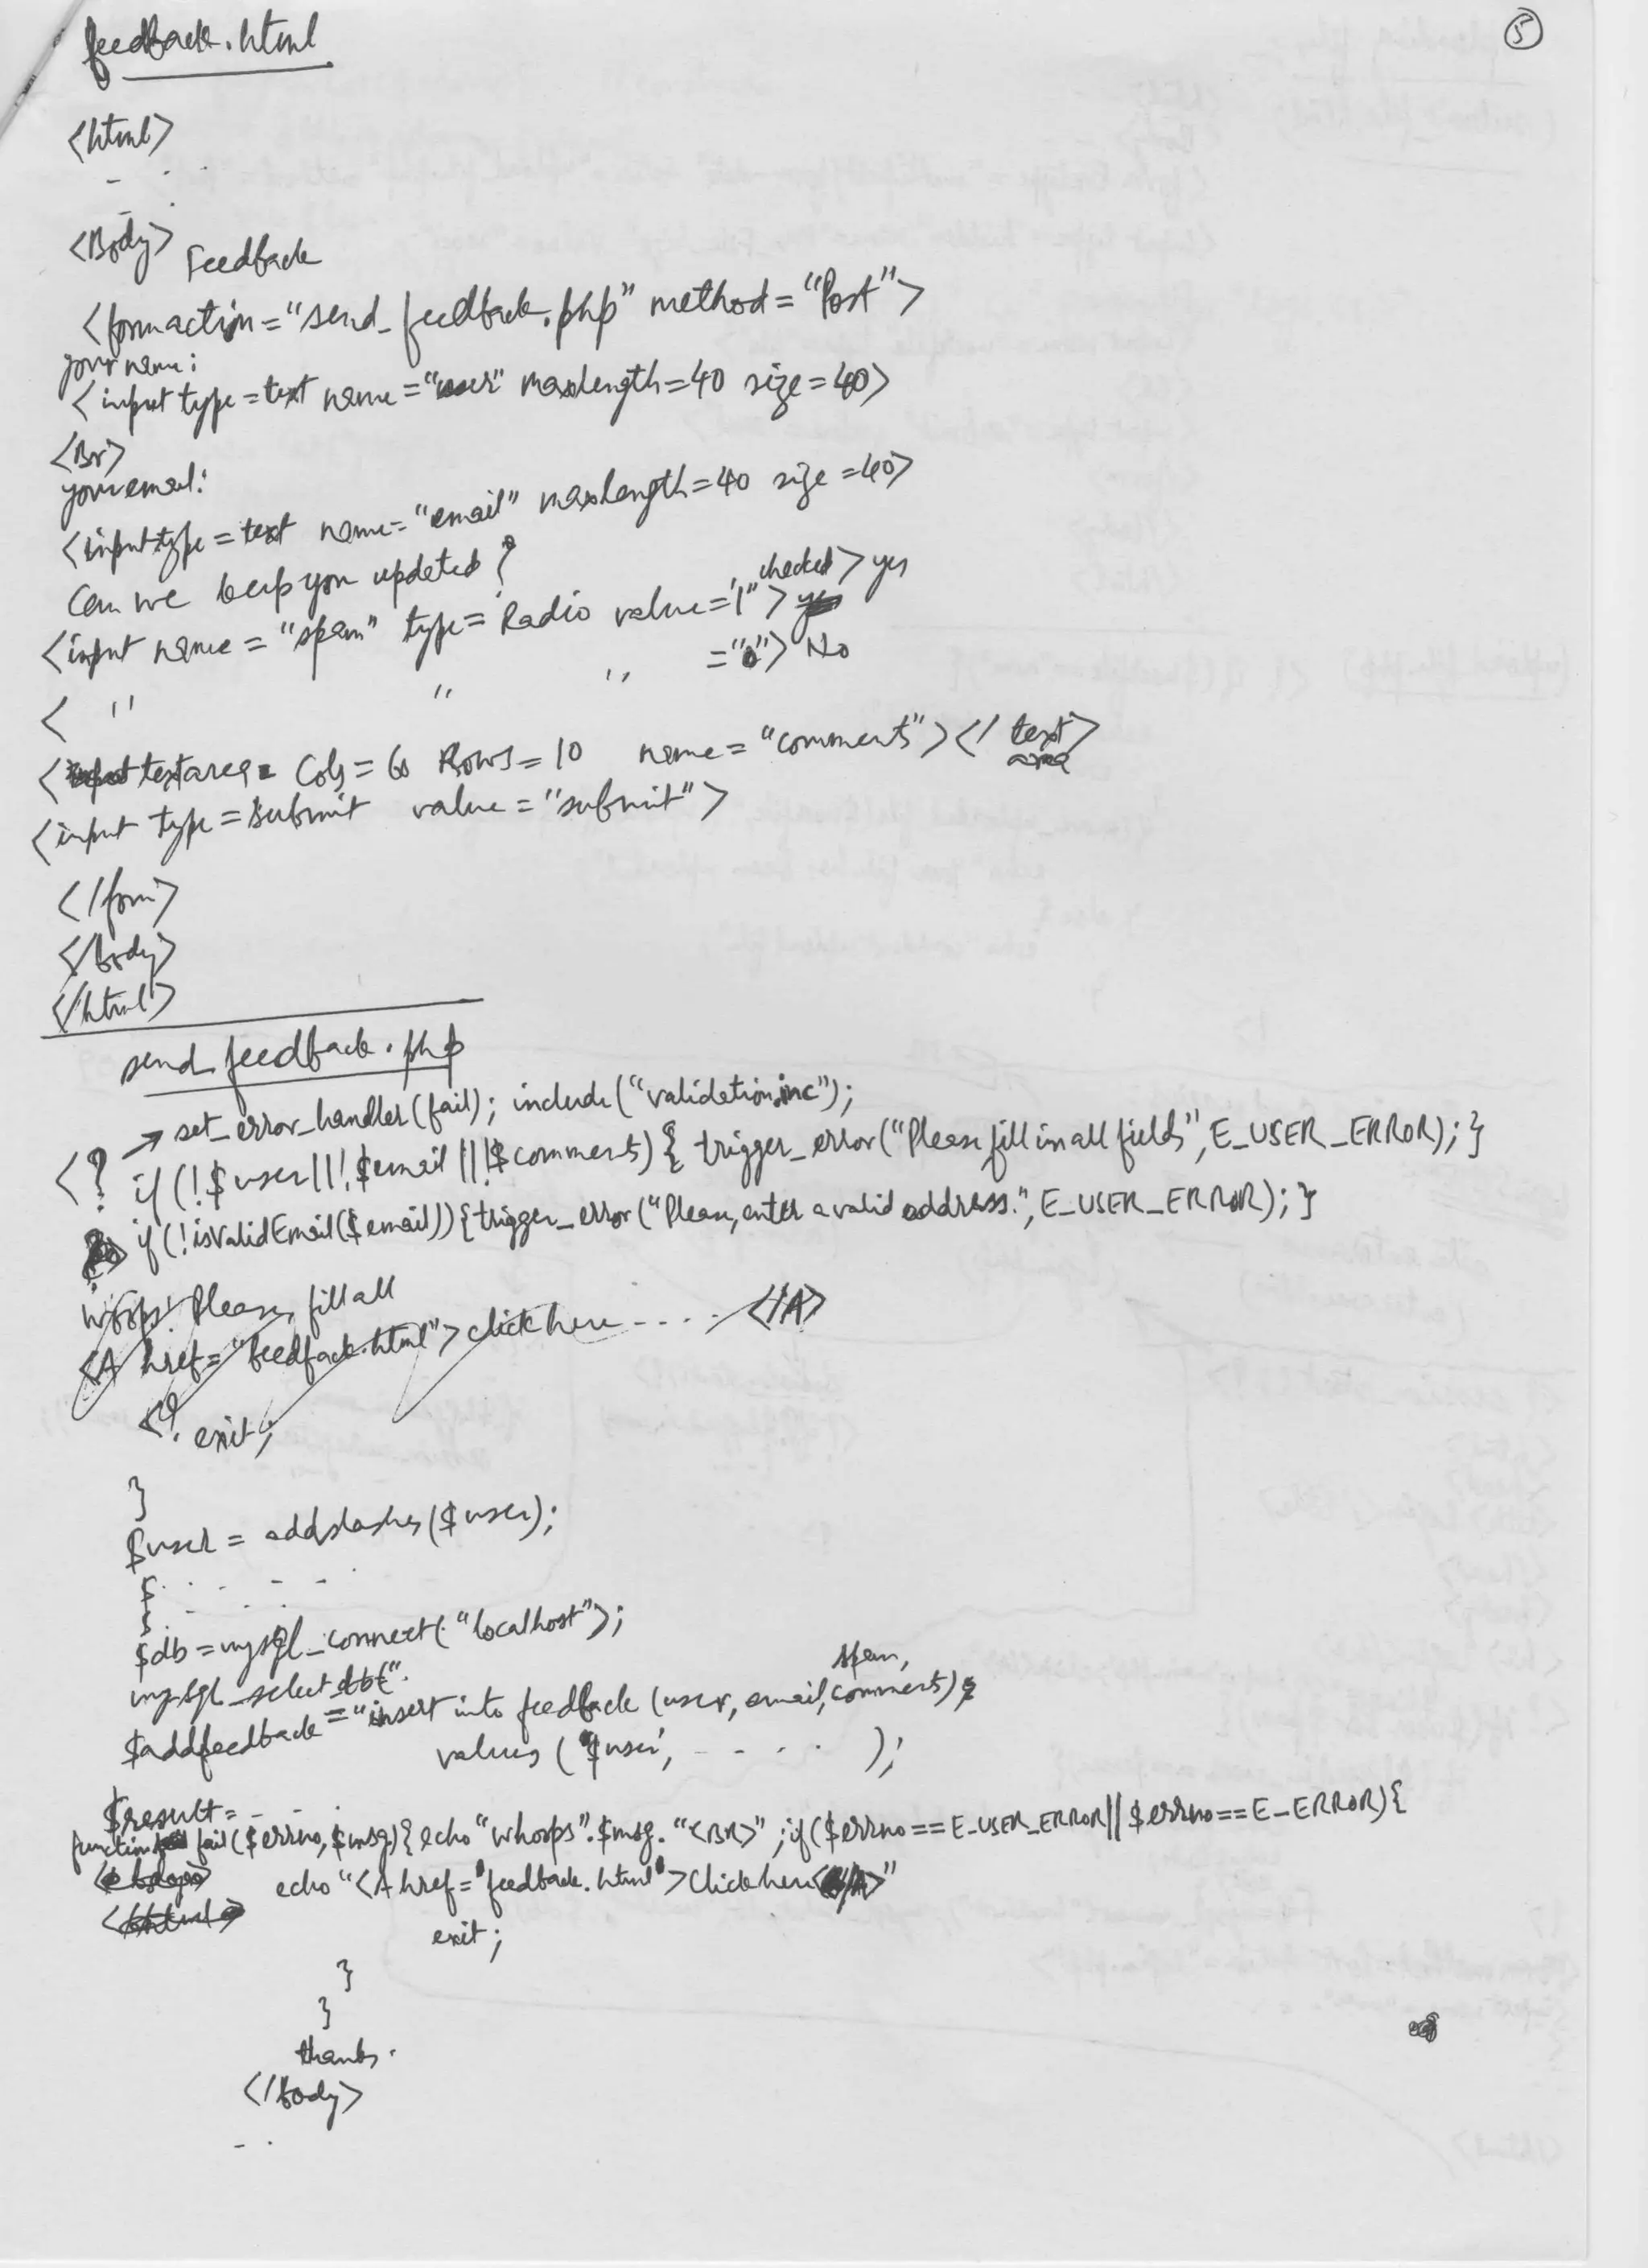 ⑤
feedback.html
<html>
- . .
-
<Body> Feedback
<form action="send_feedback.php" method="Post">
your name:
<input type=text name="user" maxlength=40 size=40>
<Br>
your email:
<input type=text name="email" maxlength=40 size=40>
Can we keep you updated?
<input name="spam" type=Radio value="1"> checked> yes
< " " " ="0"> No
<textarea Cols=60 Rows=10 name="comments"></textarea>
<input type=submit value="submit">
</form>
</body>
</html>
send_feedback.php
<? → set_error_handler(fail); include("validation.inc");
if(!$user||!$email||!$comments){ trigger_error("Please fill in all fields", E_USER_ERROR); }
if(!isValidEmail($email)){trigger_error("Please, enter a valid address.", E_USER_ERROR); }
Whoops! Please, fill all
<A href="feedback.html">click here ....</A>
<? exit;
}
$user = addslashes($user);
$ . . - - .
$ . - . .
$db=mysql_connect("localhost");
mysql_select_db(".
spam,
$addfeedback="insert into feedback (user, email, comments)
values ('$user', - - . . );
$result= - - .
function fail($errno,$msg){echo "Whoops".$msg."<BR>";if($errno==E_USER_ERROR||$errno==E_ERROR){
echo "<A href='feedback.html'>Click here</A>"
exit;
}
}
thanks.
</body>
- .